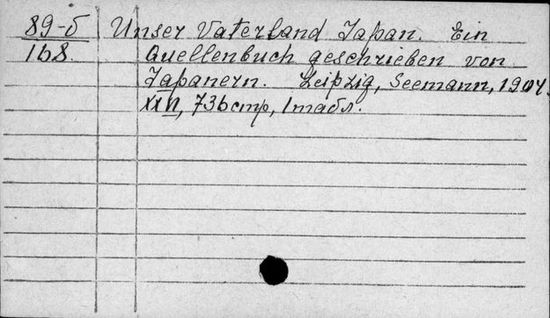 89-б Unser Vaterland Japan. Ein
168. Quellenbuch geschrieben von
Japanern. Leipzig, Seemann, 1904.
736 стр, 1 табл.